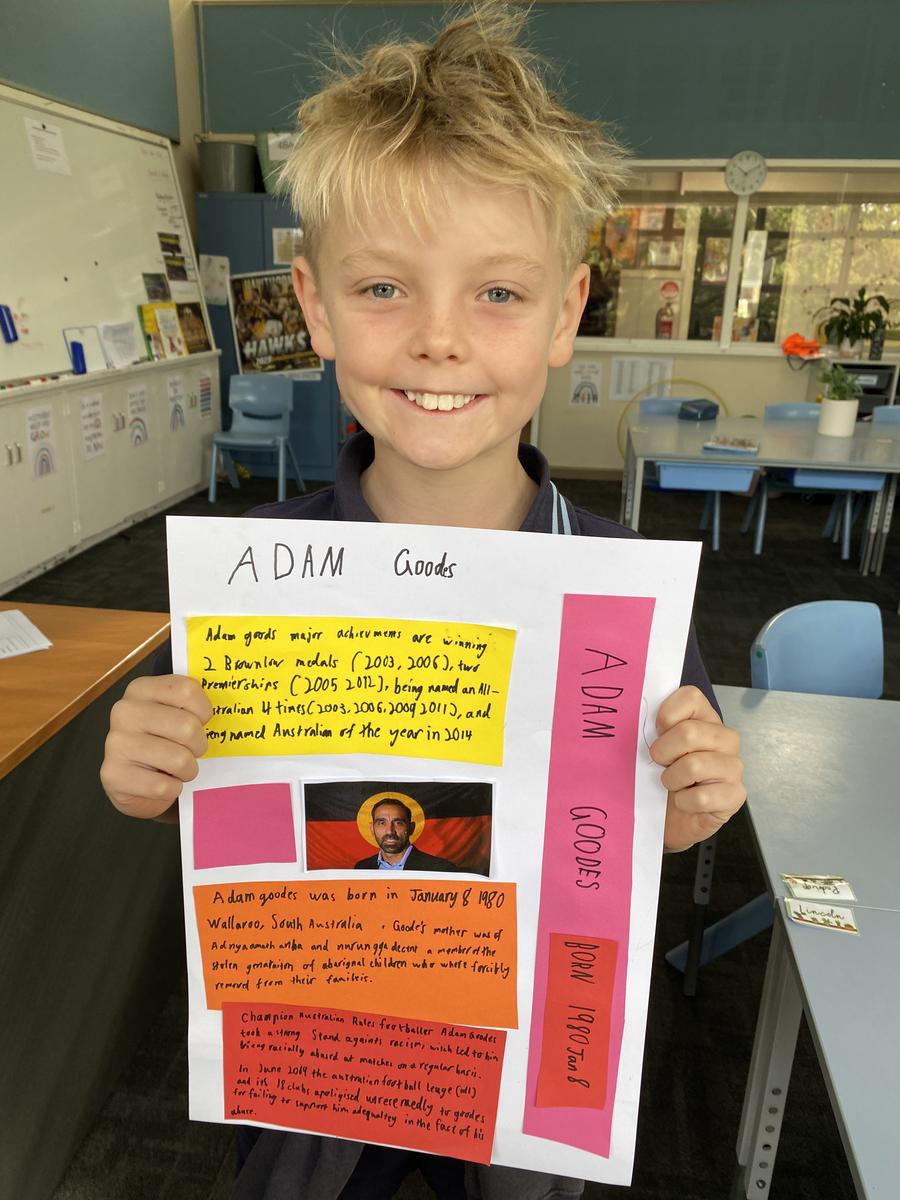 HAWTHORN
HAWKS
ADAM Goodes
Adam goods major achievments are winning
2 Brownlow medals (2003, 2006), two
Premierships (2005 2012), being named an All-
stralian 4 times (2003, 2006, 2009 2011), and
ieng named Australian of the year in 2014
Adam goodes was born in January 8 1980
Wallaroo, South Australia . Goode's mother was of
and decent a member of the
stolen of children who where forcibly
removed from their
Champion Australian Rules footballer Adam Goodes
took a strong Stand againts racism, witch led to him
being racially abused at matches on a regular basis.
In June 2019 the australian football leuge (afl)
and its 18 clubs unreservedly to goodes
for failing to support him in the fact of his
abuse.
ADAM GOODES
BORN 1980 Jan 8
Lincoln